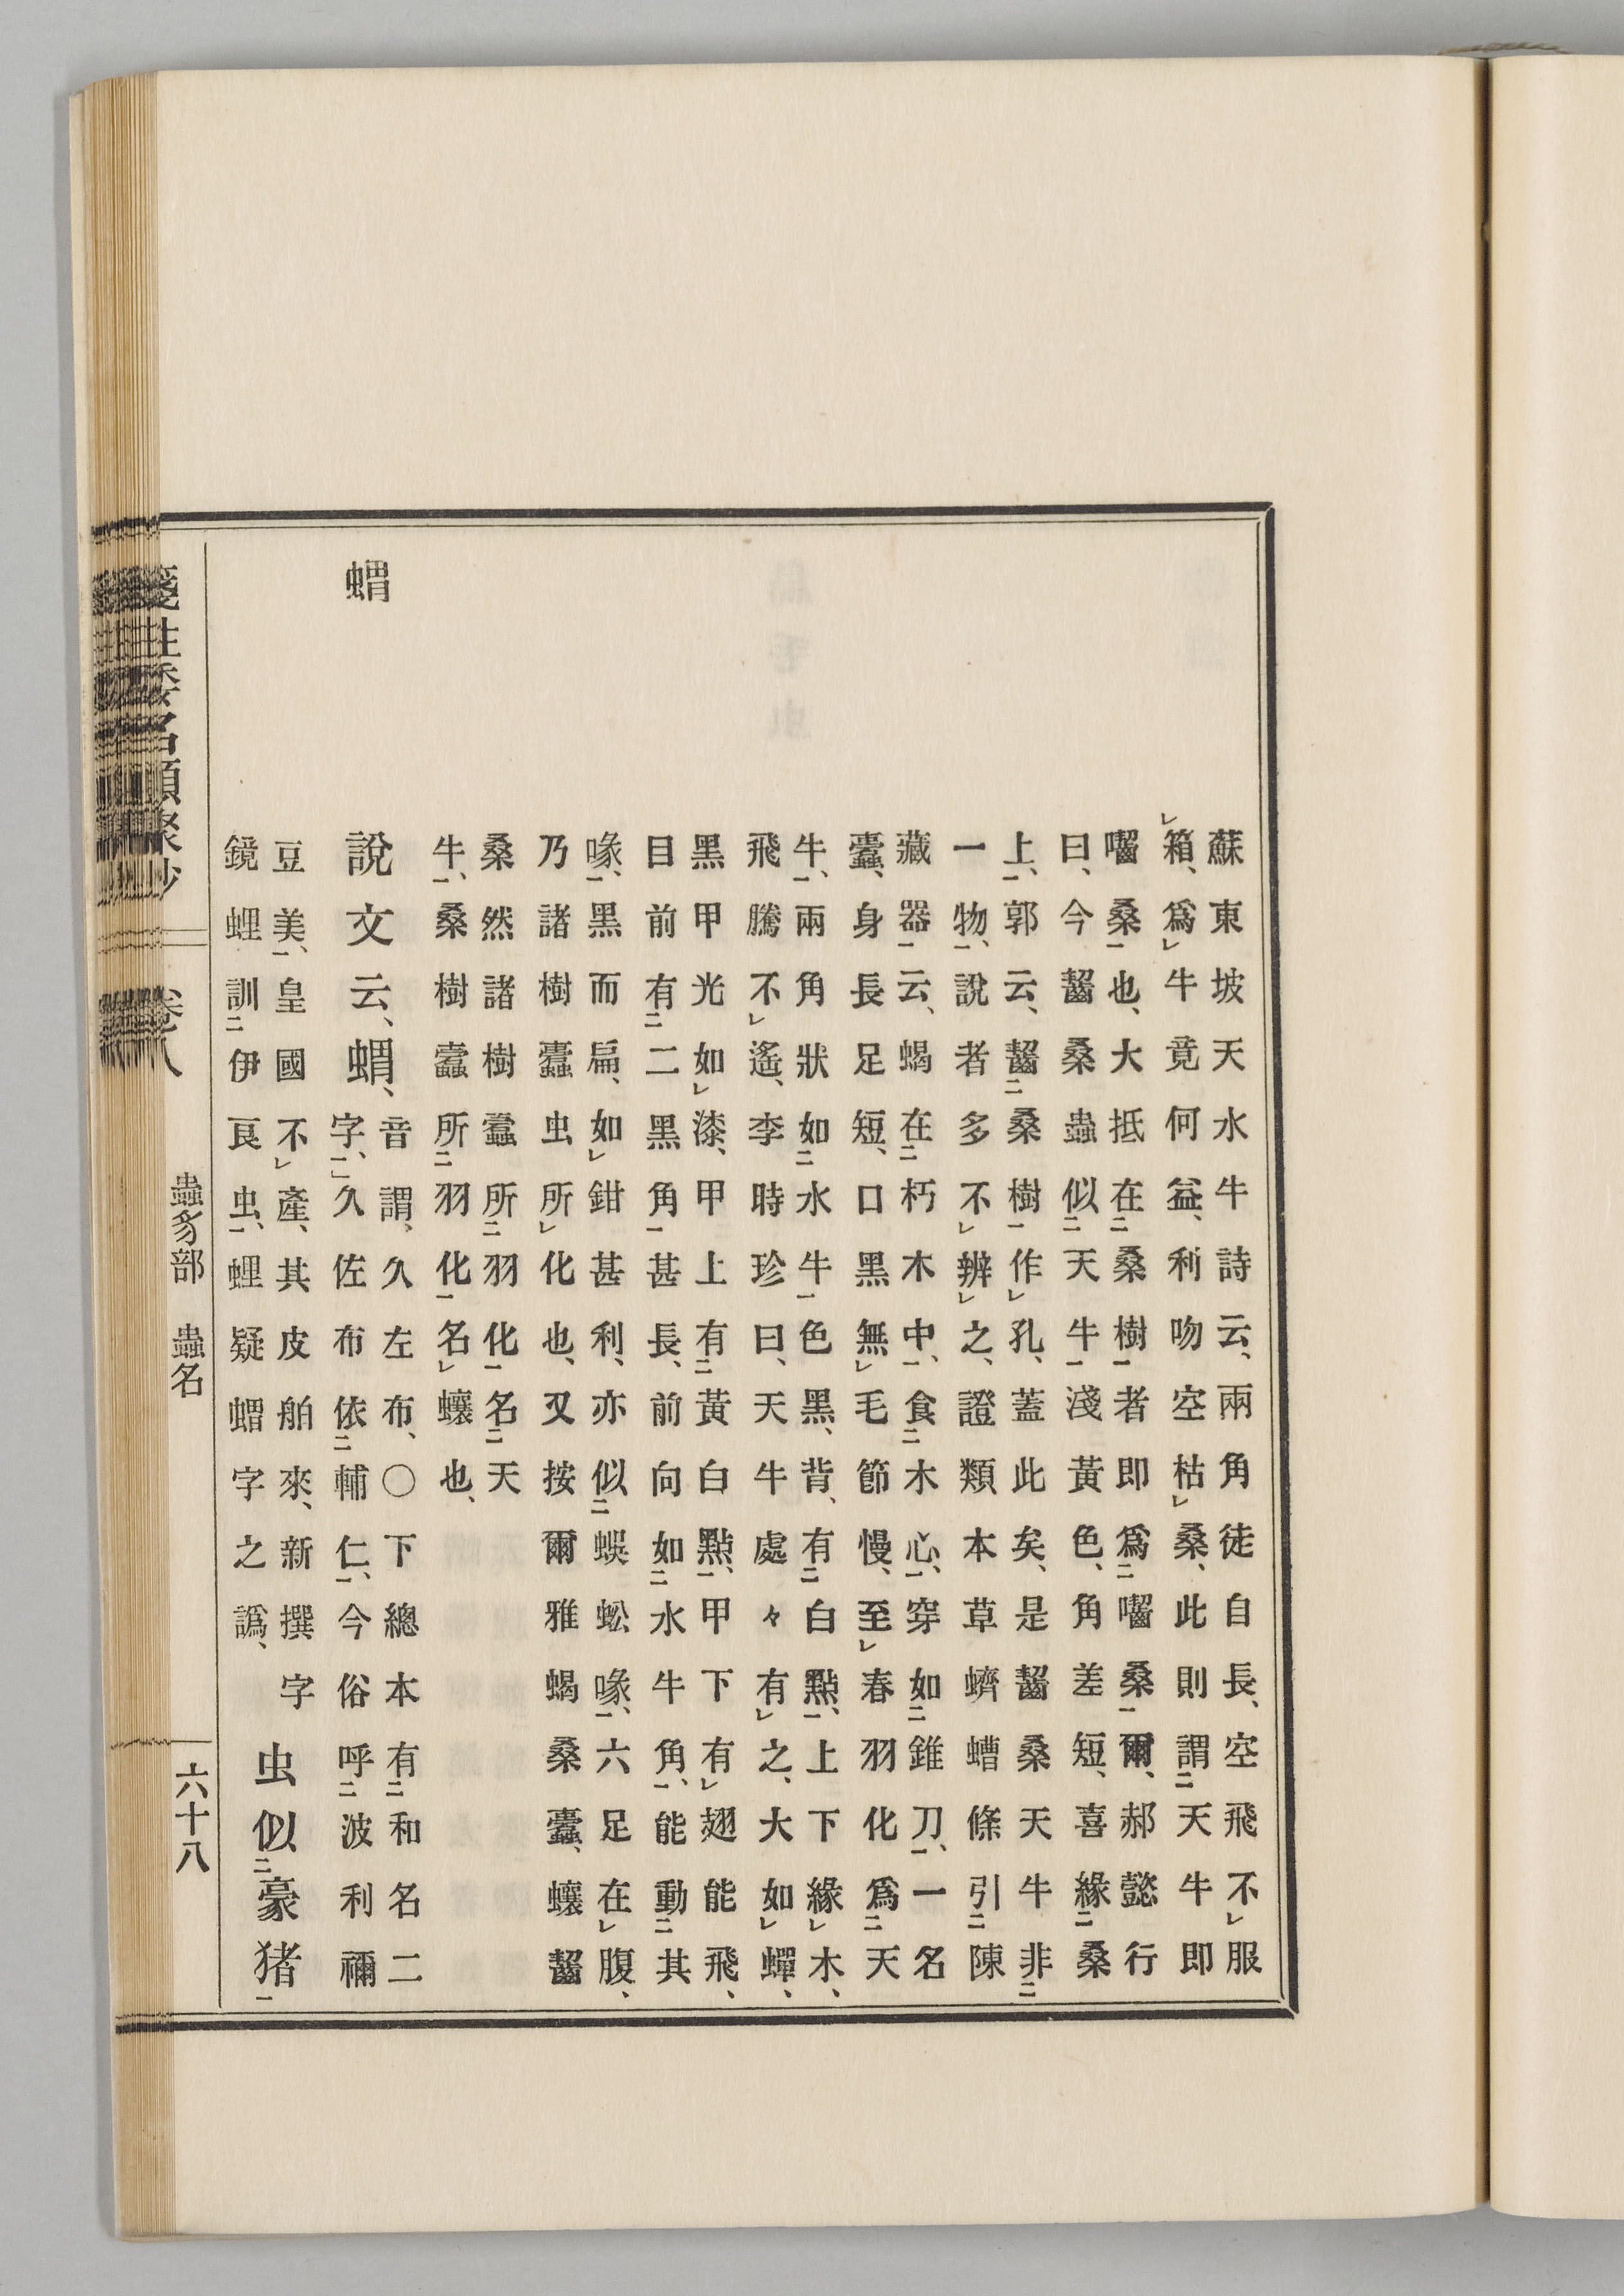 蘇東坡天水牛詩云、兩角徒自長、空飛不レ服
レ箱、爲レ牛竟何益、利吻空枯レ桑、此則謂二天牛即
囓桑一也、大抵在二桑樹一者即爲二囓桑一爾、郝懿行
曰、今齧桑蟲似二天牛一淺黃色、角差短、喜緣二桑
上一、郭云、齧二桑樹一作レ孔、蓋此矣、是齧桑天牛非二
一物一、說者多不レ辨レ之、證類本草蠐螬條引二陳
藏器一云、蝎在二朽木中一、食二木心一、穿如二錐刀一、一名
蠹、身長足短、口黑無レ毛節慢、至レ春羽化爲二天
牛一、兩角狀如二水牛一色黑、背有二白點一、上下緣レ木、
飛騰不レ遙、李時珍曰、天牛處々有レ之、大如レ蟬、
黑甲光如レ漆、甲上有二黃白點一、甲下有レ翅能飛、
目前有二二黑角一甚長、前向如二水牛角一、能動二其
喙一、黑而扁、如レ鉗甚利、亦似二蜈蚣喙一、六足在レ腹、
乃諸樹蠹虫所レ化也、又按爾雅蝎桑蠹、蠰齧
桑然諸樹蠹所二羽化一名二天
牛一、桑樹蠹所二羽化一名レ蠰也、
蝟
說文云、蝟、
音謂、久左布、〇下總本有二和名二
字、二」久佐布依二輔仁一、今俗呼二波利禰
豆美一、皇國不レ產、其皮舶來、新撰字
鏡蜱訓二伊良虫一、蜱疑蝟字之譌、
虫似二豪猪一
箋注倭名類聚抄
卷八
蟲豸部　蟲名
六十八